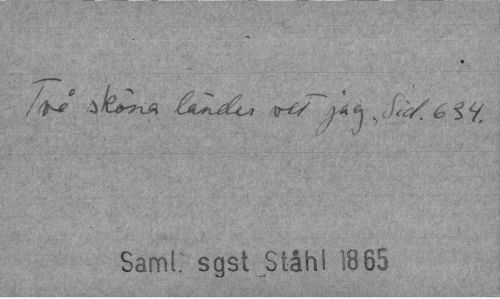 Två sköna länder vet jag, Sid. 634.
Saml. sgst Ståhl 1865